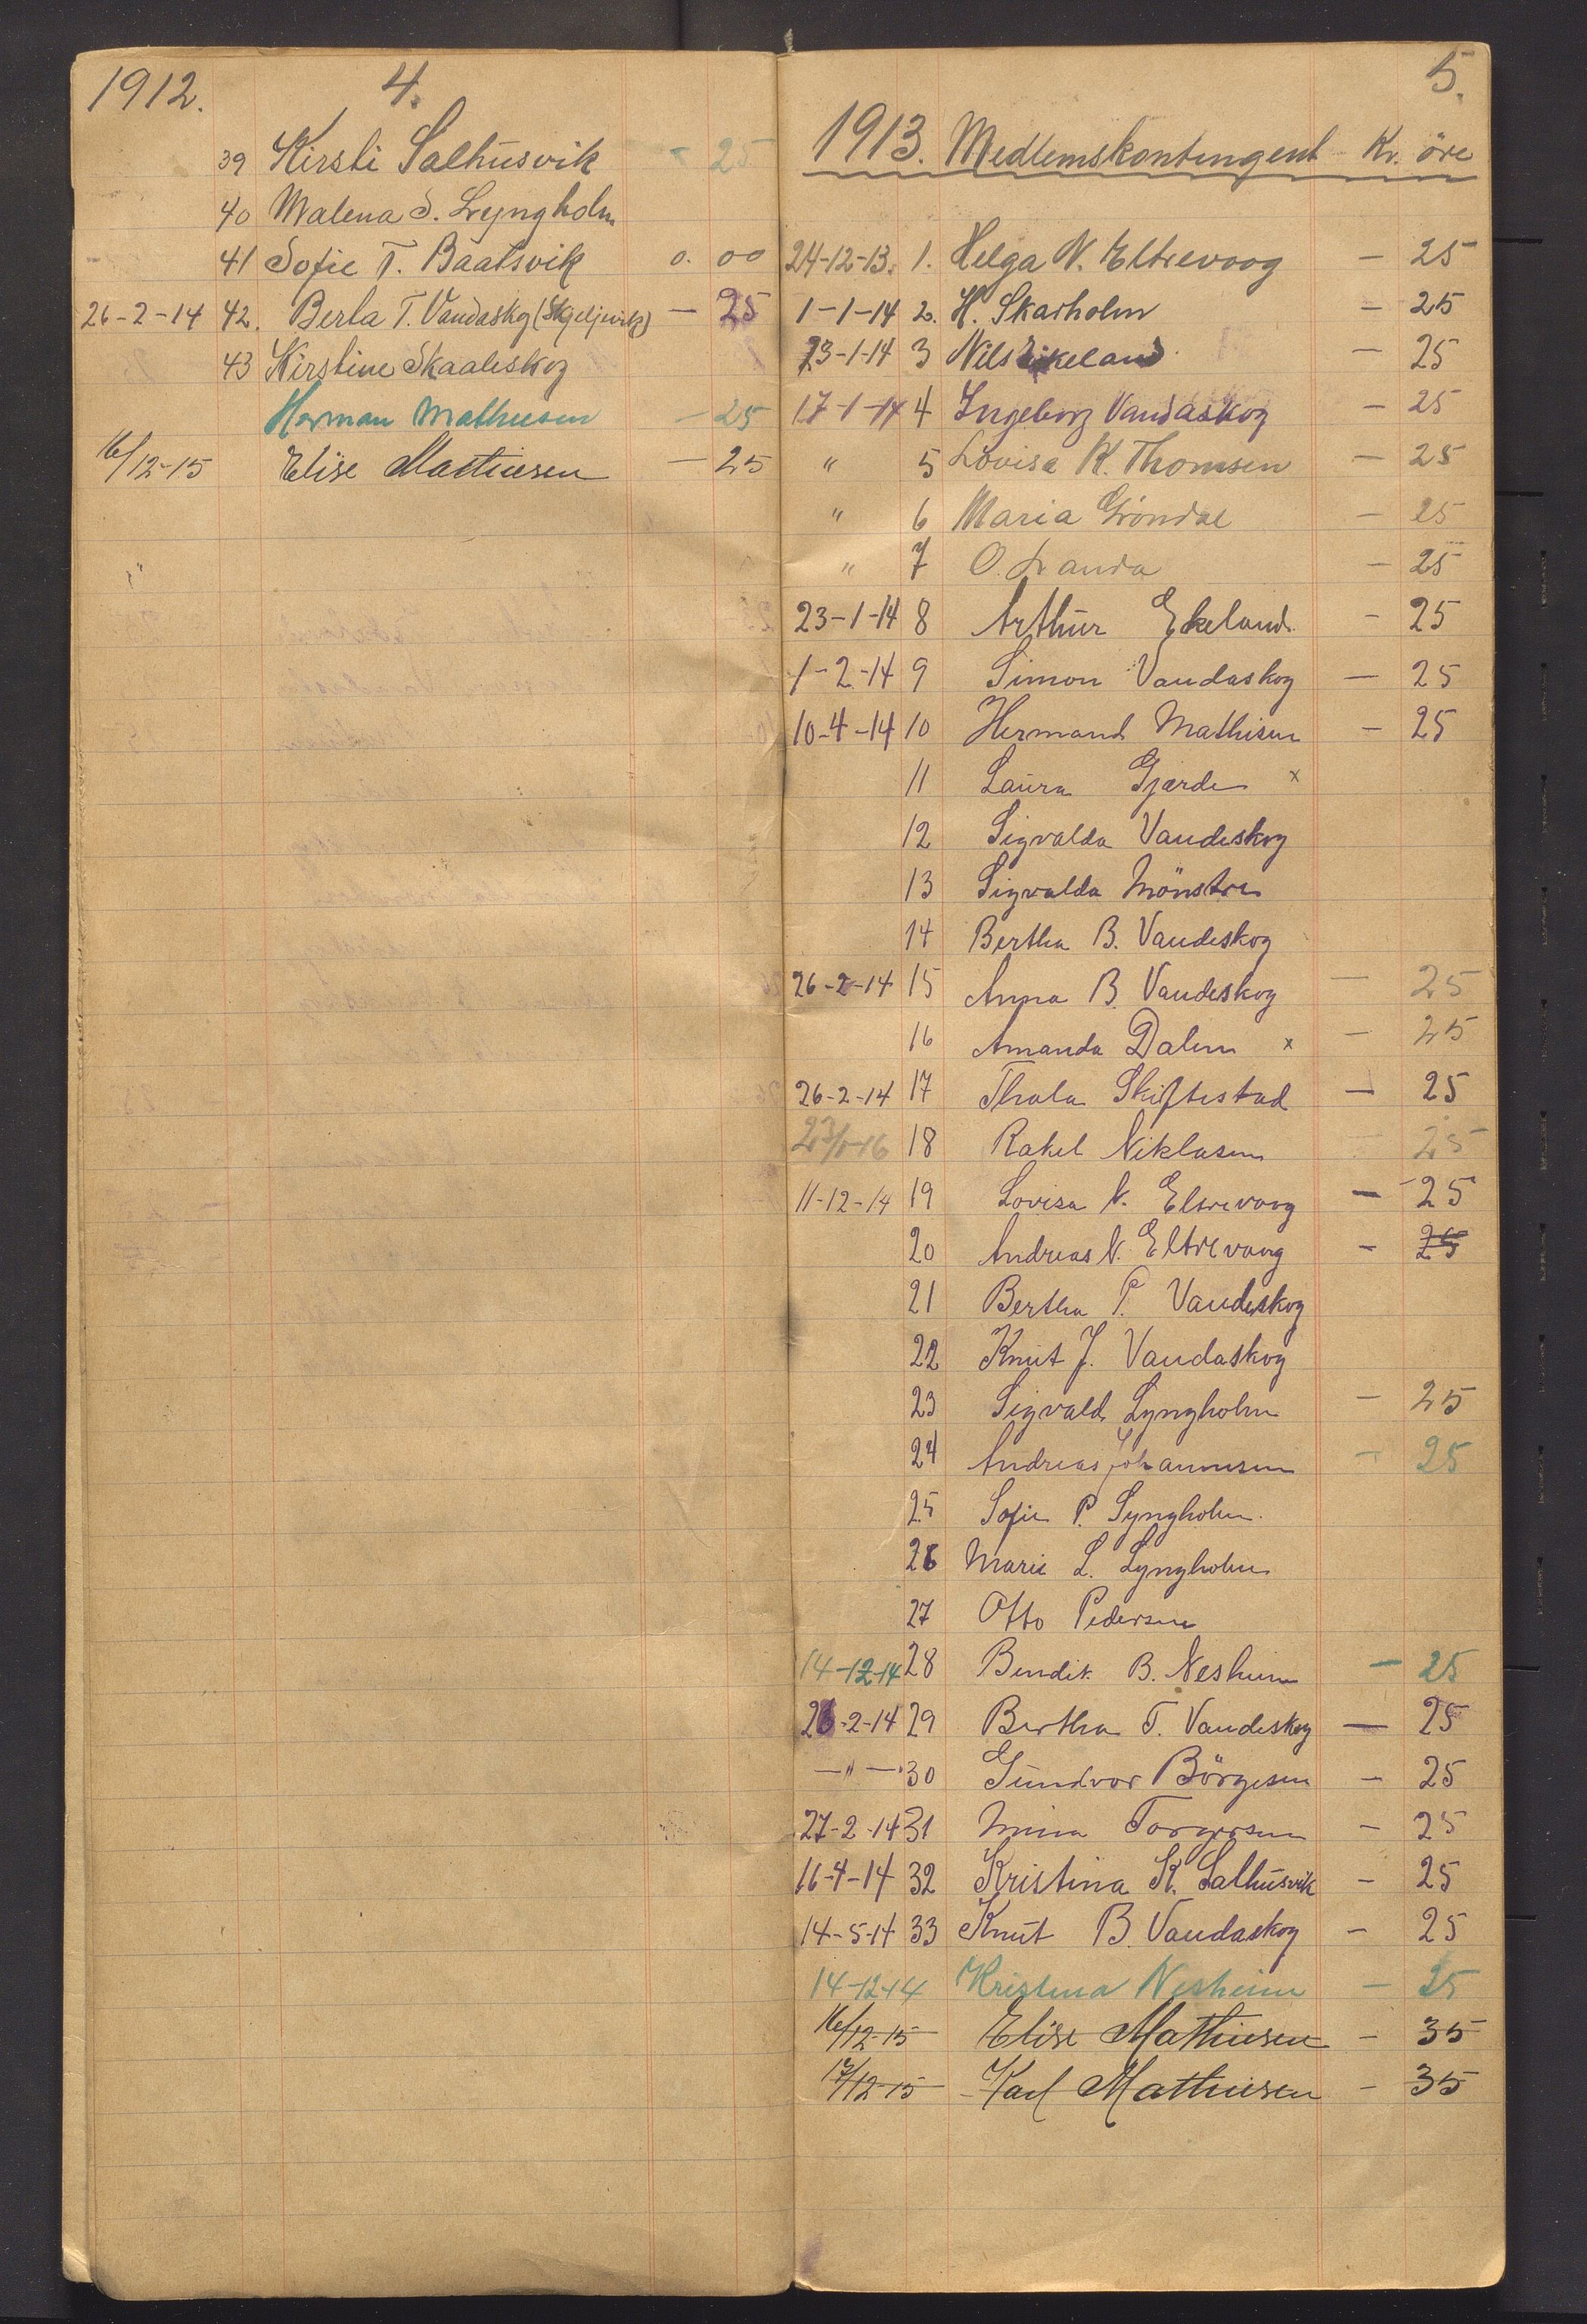 1912. 4.
39 Kirsti Salhusvik - 25
40 Malena S. Lyngholm
41 Sofie T. Baatsvik 0. 00
26-2-14 42. Berta T. Vandaskog (Skjeljevik) - 25
43 Kirstine Skaaleskog
Herman Mathiesen - 25
16/12-15 Elise Mathiesen - 25
5.
1913. Medlemskontingent Kr. öre
24-12-13. 1. Helga N. Eltrevoog - 25
1-1-14 2. H. Skarholm - 25
23-1-14 3 Nils Eikeland - 25
17-1-14 4 Ingeborg Vandaskog - 25
" 5 Lovisa K. Thomsen - 25
" 6 Maria Gröndal - 25
" 7 O. Landa - 25
23-1-14 8 Arthur Ekeland - 25
1-2-14 9 Simon Vandaskog - 25
10-4-14 10 Hermand Mathisen - 25
11 Laura Gjærde x
12 Sigvalda Vandeskog
13 Sigvalda Mönstre
14 Bertha B. Vandeskog
26-2-14 15 Anna B. Vandeskog - 25
16 Amanda Dalen x - 25
26-2-14 17 Thala Skiftestad - 25
18 Rakel Niklasen - 25
11-12-14 19 Lovisa N. Elsrevoog - 25
20 Andreas N. Eltrevoog - 25
21 Bertha P. Vandeskog
22 Knut J. Vandaskog
23 Sigvald Lyngholm - 25
24 Andreas Johannesen - 25
25 Sofie P. Lyngholm.
26 Marie L. Lyngholm
27 Otto Pedersen
14-12-14 28 Bendik B. Nesheim - 25
26-2-14 29 Bertha T. Vandeskog - 25
-"- 30 Gundvor Börgesen - 25
27-2-14 31 Mina Torgersen - 25
16-4-14 32 Kristina K. Salhusvik - 25
14-5-14 33 Knut B. Vandaskog - 25
14-12-14 Kristina Nesheim - 25
16/12-15 Elise Mathiesen - 35
17/12-15 Karl Mathiesen - 35